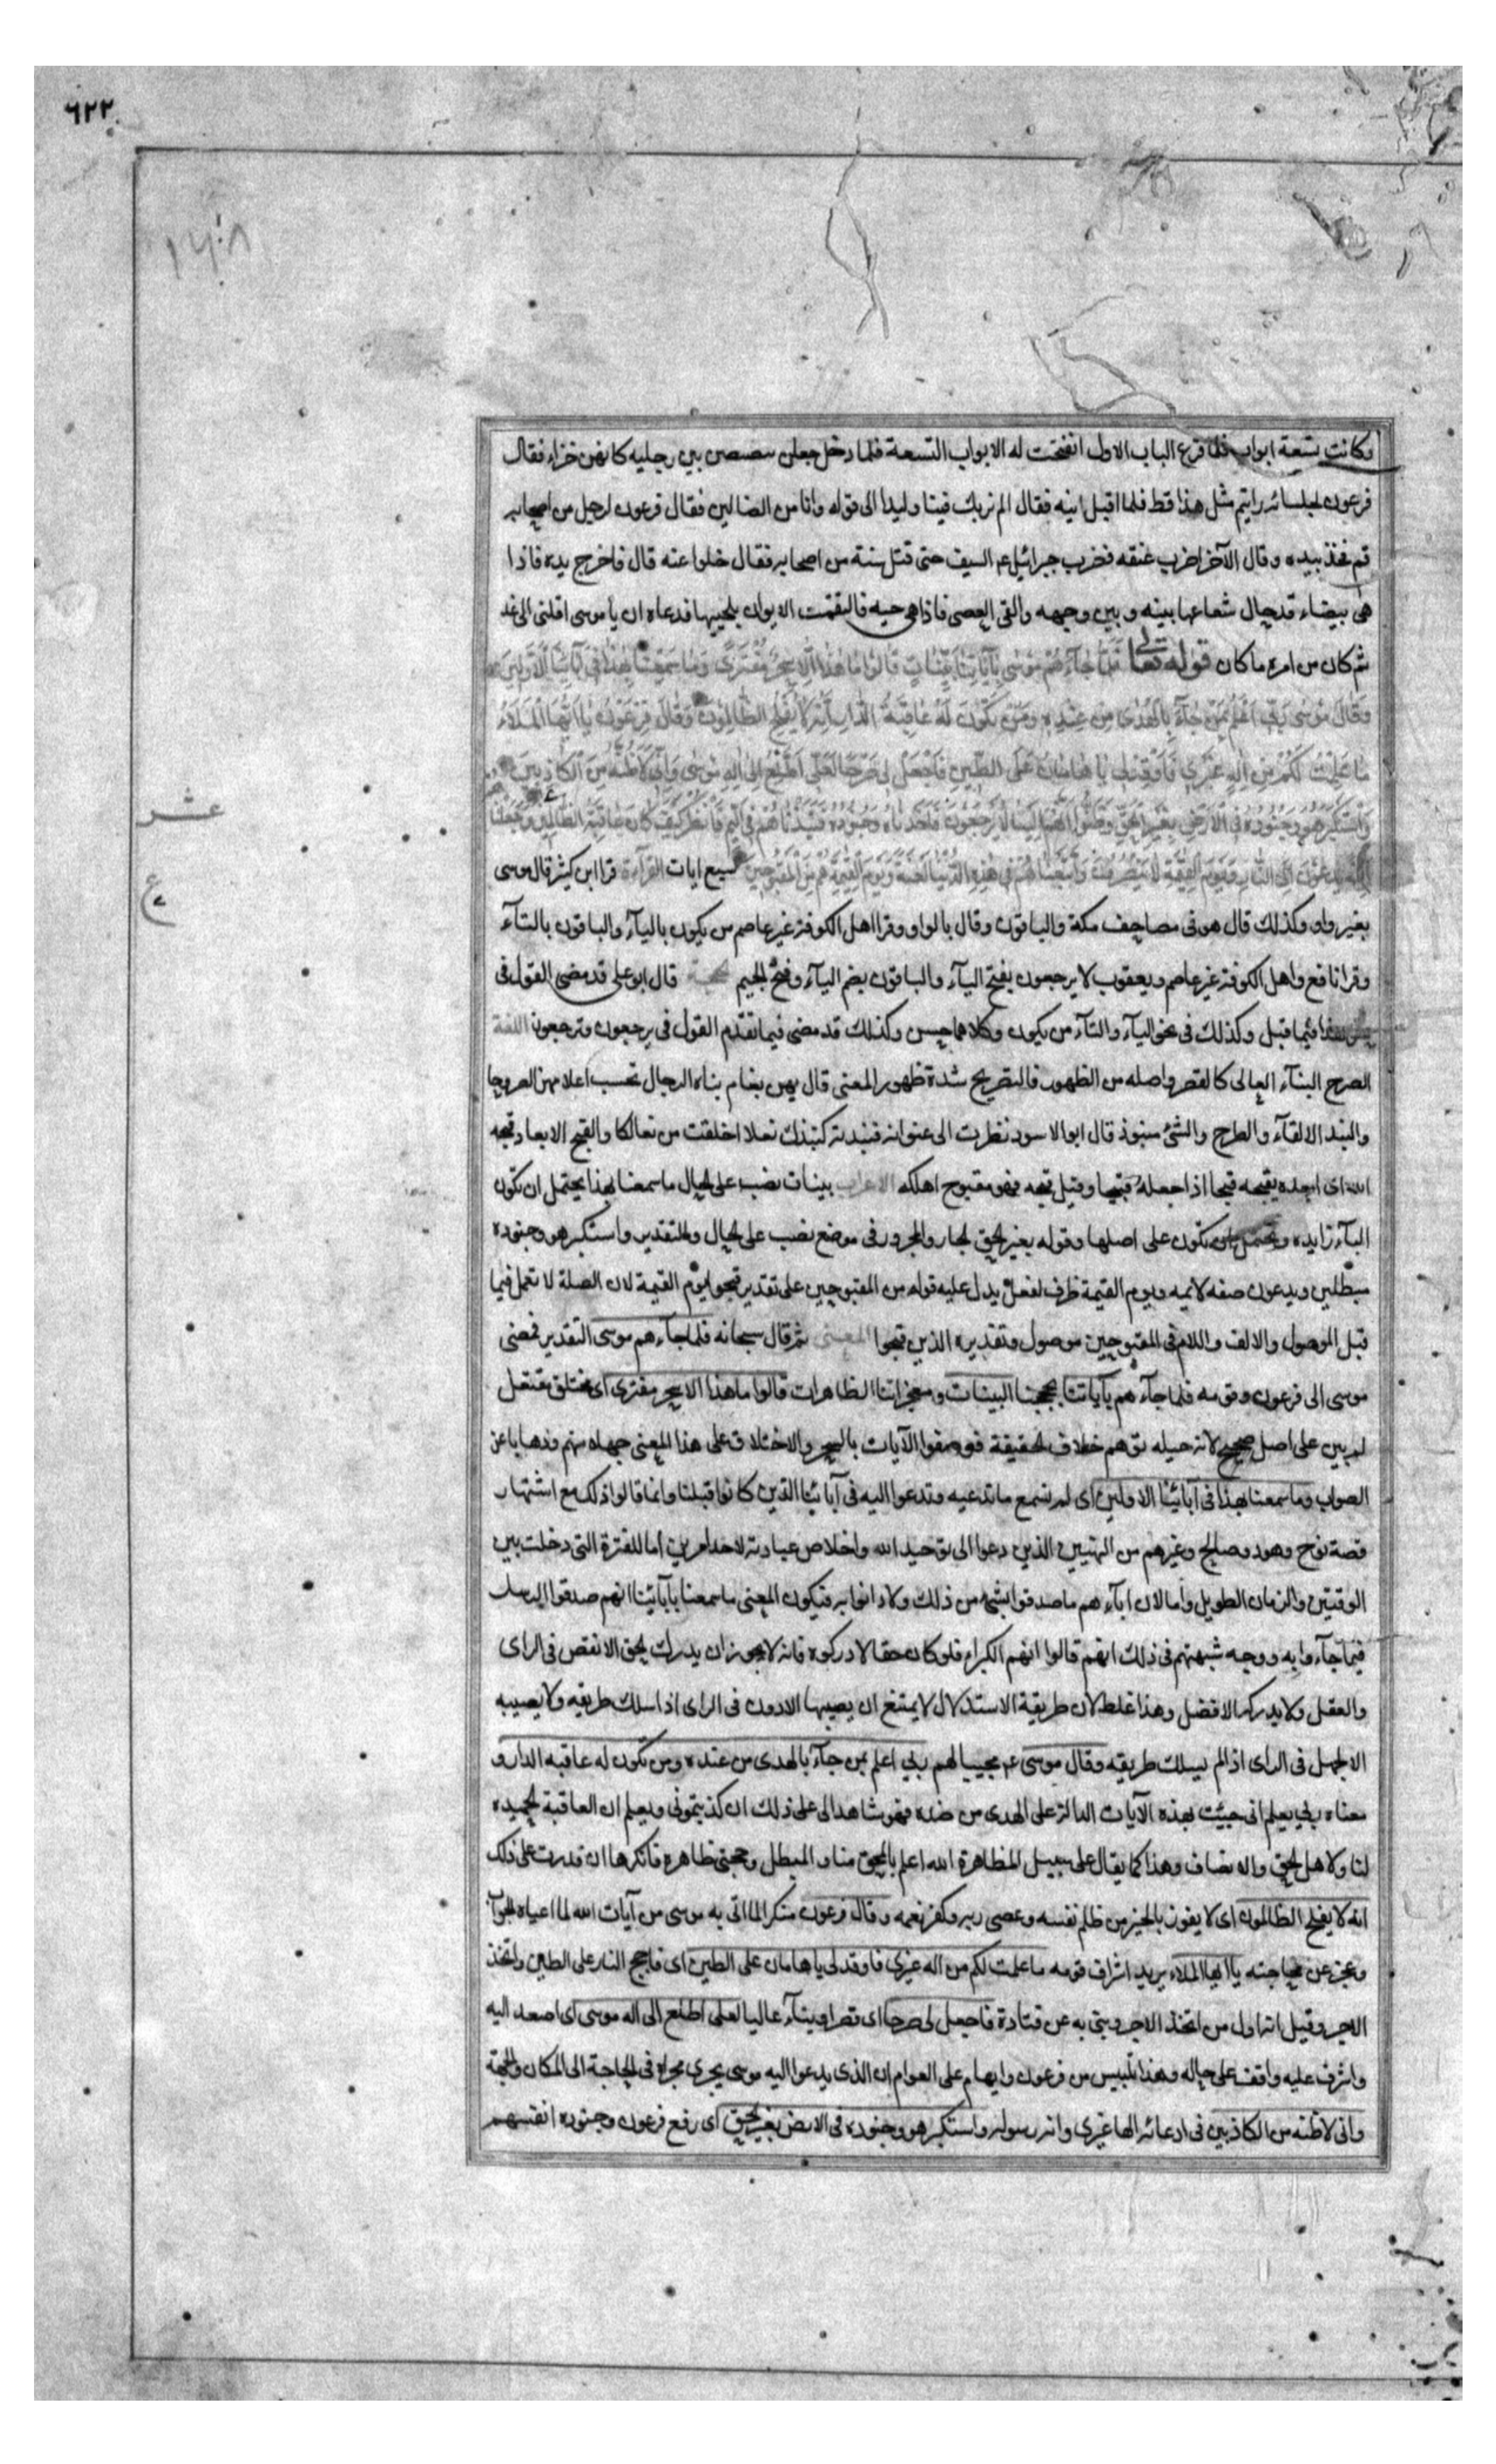 ٦٢٢
١٦٠٨
وكانت تسعة ابواب فلما قرع الباب الاول انفتحت له الابواب التسعة فلما دخل جعلن تبصبصن بين رجليه كانهن جراء فقال
فرعون لجلسائه رايتم مثل هذا قط فلما اقبل اليه فقال الم نربك فينا وليدا الى قوله وانا من الضالين فقال فرعون لرجل من اصحابه
قم فخذ بيده وقال الآخر اضرب عنقه فضرب جبرائيل عم السيف حتى قتل ستة من اصحابه فقال خلوا عنه قال فاخرج يده فاذا
هى بيضاء قد حال شعاعها بينه وبين وجهه والقى العصى فاذا هى حية فالتقمت الايوان بلحييها فدعاه ان يا موسى اقلنى الى غد
ثم كان من امره ما كان قوله تعالى فَلَمَّا جَآءَهُمْ مُوسٰى بِآيَاتِنَا بَيِّنَاتٍ قَالُوا مَا هٰذَا اِلَّا سِحْرٌ مُفْتَرًى وَمَا سَمِعْنَا بِهٰذَا فِى آبَائِنَا الْاَوَّلِينَ
وَقَالَ مُوسٰى رَبِّى اَعْلَمُ بِمَنْ جَآءَ بِالْهُدٰى مِنْ عِنْدِهِ وَمَنْ تَكُونُ لَهُ عَاقِبَةُ الدَّارِ اِنَّهُ لَا يُفْلِحُ الظَّالِمُونَ وَقَالَ فِرْعَوْنُ يَا اَيُّهَا الْمَلَاءُ
مَا عَلِمْتُ لَكُمْ مِنْ اِلٰهٍ غَيْرِى فَاَوْقِدْ لِى يَا هَامَانُ عَلَى الطِّينِ فَاجْعَلْ لِى صَرْحًا لَعَلِّى اَطَّلِعُ اِلٰى اِلٰهِ مُوسٰى وَاِنِّى لَاَظُنُّهُ مِنَ الْكَاذِبِينَ
وَاسْتَكْبَرَ هُوَ وَجُنُودُهُ فِى الْاَرْضِ بِغَيْرِ الْحَقِّ وَظَنُّوا اَنَّهُمْ اِلَيْنَا لَا يُرْجَعُونَ فَاَخَذْنَاهُ وَجُنُودَهُ فَنَبَذْنَاهُمْ فِى الْيَمِّ فَانْظُرْ كَيْفَ كَانَ عَاقِبَةُ الظَّالِمِينَ وَجَعَلْنَا
يَدْعُونَ اِلَى النَّارِ وَيَوْمَ الْقِيٰمَةِ لَا يُنْصَرُونَ وَاَتْبَعْنَاهُمْ فِى هٰذِهِ الدُّنْيَا لَعْنَةً وَيَوْمَ الْقِيٰمَةِ هُمْ مِنَ الْمَقْبُوحِينَ سبع ايات القراءة قرا ابن كثير قال موسى
عشر
ع
بغير واو وكذلك قال هو فى مصاحف مكة والباقون وقال بالواو وقرا اهل الكوفة غير عاصم من يكون باليآء والباقون بالتآء
وقرا نافع واهل الكوفة غير عاصم ويعقوب لا يرجعون بفتح اليآء والباقون بضم اليآء وفتح الجيم الحجة قال ابو على قد مضى القول فى
فيما قبل وكذلك فى نحو اليآء والتآء من يكون وكلاهما حسن وكذلك قد مضى فيما تقدم القول فى يرجعون وترجعون اللغة
الصرح البنآء العالى كالقصر واصله من الظهور فالتصريح شدة ظهور المعنى قال بهن نعام بناه الرجال تحسب اعلامهن الصروحا
والنبذ الالقآء والطرح والشئ منبوذ قال ابو الاسود نظرت الى عنوانه فنبذته كنبذك نعلا اخلقت من نعالكا والقبح الابعاد قبحه
الله اى ابعده يقبحه قبحا اذا جعله قبيحا وقيل قبحه فهو مقبوح اهلكه الاعراب بينات نصب على الحال ما سمعنا بهذا يحتمل ان تكون
البآء زايدة ويحتمل ان تكون على اصلها وقوله بغير الحق الجار والمجرور فى موضع نصب على الحال والتقدير واستكبر هو وجنوده
مبطلين ويدعون صفة لائمة ويوم القيمة ظرف لفعل يدل عليه قوله من المقبوحين على تقدير قبحوا يوم القيمة لان الصلة لا تعمل فيما
قبل الموصول والالف واللام فى المقبوحين موصول وتقديره الذين قبحوا المعنى ثم قال سبحانه فلما جاءهم موسى التقدير فمضى
موسى الى فرعون وقومه فلما جآءهم بآياتنا بحججنا البينات ومعجزاتنا الظاهرات قالوا ما هذا الا سحر مفترى اى مختلق مفتعل
لم يبن على اصل صحيح لانه حيلة توهم خلاف الحقيقة فوصفوا الآيات بالسحر والاختلاق على هذا المعنى جهلا منهم وذهابا عن
الصواب وما سمعنا بهذا فى آبائنا الاولين اى لم نسمع ما تدعيه وتدعوا اليه فى آبائنا الذين كانوا قبلنا وانما قالوا ذلك مع اشتهار
قصة نوح وهود وصالح وغيرهم من النبيين الذين دعوا الى توحيد الله واخلاص عبادته لاحد امرين اما للفترة التى دخلت بين
الوقتين والزمان الطويل واما لان آباءهم ما صدقوا بشئ من ذلك ولا دانوا به فيكون المعنى ما سمعنا بآبائنا انهم صدقوا الرسل
فيما جآءوا به ووجه شبهتهم فى ذلك انهم قالوا انهم الكبراء فلو كان حقا لادركوه فانه لا يجوز ان يدرك الحق الانقص فى الراى
والعقل ولا يدركه الافضل وهذا غلط لان طريقة الاستدلال لا يمتنع ان يصيبها الادون فى الراى اذا سلك طريقه ولا يصيبه
الاجمل فى الراى اذا لم يسلك طريقه وقال موسى عم مجيبا لهم ربى اعلم بمن جآء بالهدى من عنده ومن تكون له عاقبة الدار و
معناه ربى يعلم انى جئت بهذه الآيات الدالة على الهدى من عنده فهو شاهد لى على ذلك ان كذبتمونى ويعلم ان العاقبة الحميدة
لنا ولاهل الحق والانصاف وهذا كما يقال على سبيل المظاهرة الله اعلم بالمحق منا والمبطل وحجتى ظاهرة فانكرها ان قدرت على ذلك
انه لا يفلح الظالمون اى لا يفوز بالخير من ظلم نفسه وعصى ربه وكفر نعمه وقال فرعون منكرا لما اتى به موسى من آيات الله لما اعياه الجواب
وعجز عن محاجته يا ايها الملاء يريد اشراف قومه ما علمت لكم من اله غيرى فاوقد لى يا هامان على الطين اى فاجج النار على الطين واتخذ
الاجر وقيل انه اول من اتخذ الاجر وبنى به عن قتادة فاجعل لى صرحا اى قصرا وبنآء عاليا لعلى اطلع الى اله موسى اى اصعد اليه
واشرف عليه واقف على حاله وهذا تلبيس من فرعون وايهام على العوام ان الذى يدعوا اليه موسى يجرى مجراه فى الحاجة الى المكان والجهة
وانى لاظنه من الكاذبين فى ادعائه الها غيرى وانه رسوله واستكبر هو وجنوده فى الارض بغير الحق اى رفع فرعون وجنوده انفسهم